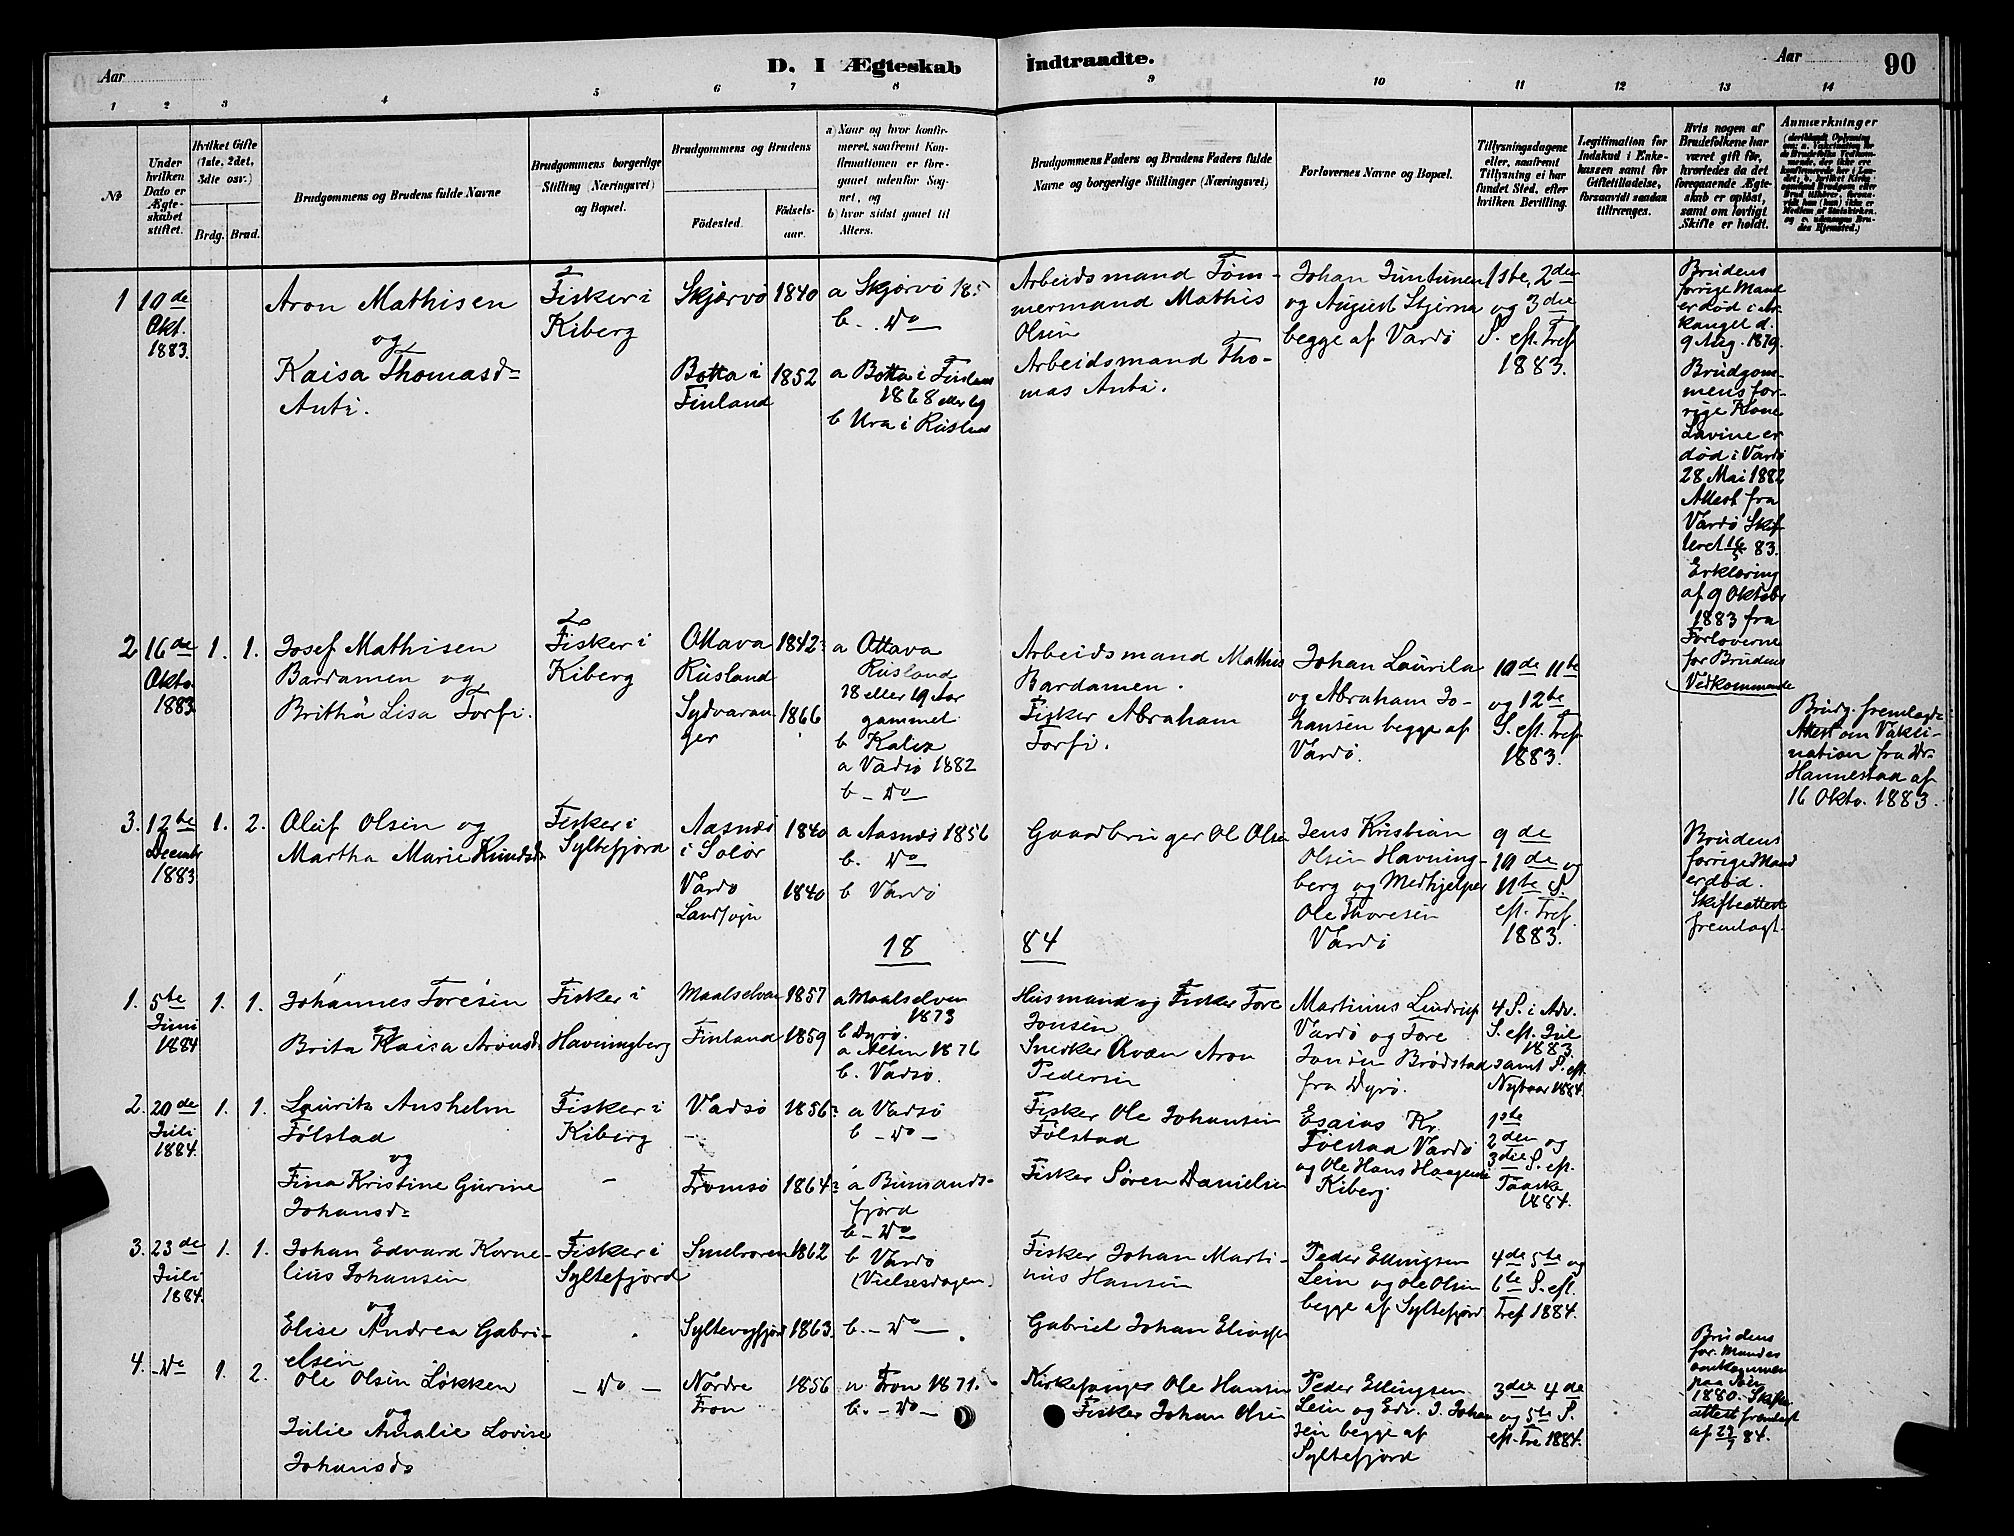 Aar
D. I Ægteskab
Indtraadte.
Aar
90
1 2 3 4 5 6 7 8 9 10 11 12 13 14
№
Under hvilken Dato er Ægteskabet stiftet.
Hvilket Gifte (1ste, 2det, 3die osv.)
Brdg. Brud.
Brudgommens og Brudens fulde Navne
Brudgommens borgerlige Stilling (Næringsvei) og Bopæl.
Brudgommens og Brudens
Födested.
Födsels-aar.
a) Naar og hvor konfirmeret, saafremt Konfirmationen er foregaaet udenfor Sognet, og
b) hvor sidst gaaet til Alters.
Brudgommens Faders og Brudens Faders fulde Navne og borgerlige Stillinger (Næringsvei)
Forlovernes Navne og Bopæl.
Tillysningsdagene eller, saafremt Tillysning ei har fundet Sted, efter hvilken Bevilling.
Legitimation for Indskud i Enkekassen samt for Giftetilladelse, forsaavidt saadan tiltrænges.
Hvis nogen af Brudefolkene har været gift før, hvorledes da det foregaaende Ægteskab er opløst, samt om lovligt Skifte er holdt.
Anmærkninger
1
10de
Okt.
1883.
Aron Mathisen
og
Kaisa Thomasd=
Anti.
Fisker i
Kiberg
Skjærvö 1840
Botta i 1852
Finland
a Skjørvö 185
b. . Do
a Botta i Finland
1868 eller 69
b Ura i Rusland
Arbeidsmand Töm-
mermand Mathis
Olsen
Arbeidsmand Tho-
mas Anti.
Johan Juntunen
og August Stjerna
begge af Vardö
1ste, 2den
og 3die
S. eft. Tref
1883.
Brudens
forrige Mand
er død i Ar-
kangel d.
9 Aug. 1879.
Brudgom-
mens for-
rige Kone
Lavine er
død i Vardö
28 Mai 1882
Attest fra
Vardö Skif-
teret 83.
Erklæring
af 9 Oktobr
1883 fra
Forloverne
for Brudens
Vedkommende
2
16de
Okto.
1883
1. 1.
Josef Mathisen
Bardamen og
Britha Lisa Torfi.
Fisker i
Kiberg
Ottava 1842
Rusland
Sydvaran 1866
ger
a Ottava
Rusland
18 eller 19 Aar
gammel
b Kalix
a Vadsö 1882
b - Do -
Arbeidsmand Mathis
Bardamen.
Fisker Abraham
Torfi.
Johan Laurila
og Abraham Jo-
hansen begge af
Vardö.
10de 11te
og 12te
S. eft. Tref
1883.
Brudg. fremlagde
Attest om Vaksi-
nation fra Dr.
Hannestad af
16 Okto. 1883.
3.
12te
Decembr
1883
1. 2.
Oluf Olsen og
Martha Marie Knudsd.
Fisker i
Syltefjord
Aasnæs 1840
i Solör
Vardö 1840
Landsogn
a Aasnæs 1856
b. Do
b Vardö
Gaardbruger Ol Olsen
Jens Kristian
Olsen Havning-
berg og Medhjelper
Ole Thoresen
Vardö
9de
10de og
11te S.
eft. Tref.
1883.
Brudens
forrige Mand
er død.
Skifteattest
fremlagt.
18 84
1.
5te
Juni
1884
1. 1.
Johannes Toresen
og
Brita Kaisa Aronsd.
Fisker i
Havningberg
Maalselven 1857
Finland 1859
a Maalselven
1873
b Dyrö.
a Alten 1876
b. Vadsö.
Husmand og Fisker Tore
Jonsen
Snedker Kvæn Aron
Pedersen
Martinus Lendrup
Vardö og Tore
Jonsen Brödstad
fra Dyrö.
4 S. i Adv.
S. eft. Jul
1883.
samt S. eft.
Nytaar 1884.
2.
20de
Juli
1884.
1. 1.
Laurits Anshelm
Fölstad
og
Fina Kristine Gurine
Johansd=
Fisker i
Kiberg
Vadsö 1856
Tromsö 1864
a Vadsö
b - Do -
a Busands-
fjord
b - Do
Fisker Ole Johansen
Fölstad
Fisker Sören Danielsen
Esaias Kr.
Fölstad Vardö
og Ole Hans Haagens
Kiberg.
1ste
2den og
3die S. eft.
Paaske
1884.
3.
23de
Juli
1884.
1. 1.
Johan Edvard Korne-
lius Johansen
og
Elise Andrea Gabri-
elsen
Fisker i
Syltefjord
Smelroren 1862
Syltevigfjord 1863.
b Vardö
(Vielsesdagen)
b. - Do -
Fisker Johan Marti-
nus Hansen
Gabriel Johan Eliassen
Peder Ellingsen
Lein og Ole Olsen
begge af Syltefjord
4de 5te og
6te S. eft.
Tref 1884.
4.
- Do
1. 2.
Ole Olsen Løkken
og
Julie Amalie Lovise
Johansd=
- Do -
Nordre 1856
Fron
a Fron 1871.
b. - Do -
Kirkesanger Ole Hansen
Fisker Johan Olsen
Peder Ellingsen
Lein og Edv. J. Johan
sen begge af
Syltefjord
3die 4de
og 5te S.
eft. Tre 1884.
Brudens
for. Mand
omkommen
paa Söen
1880. Skifte
attest fremlagt
af 84.